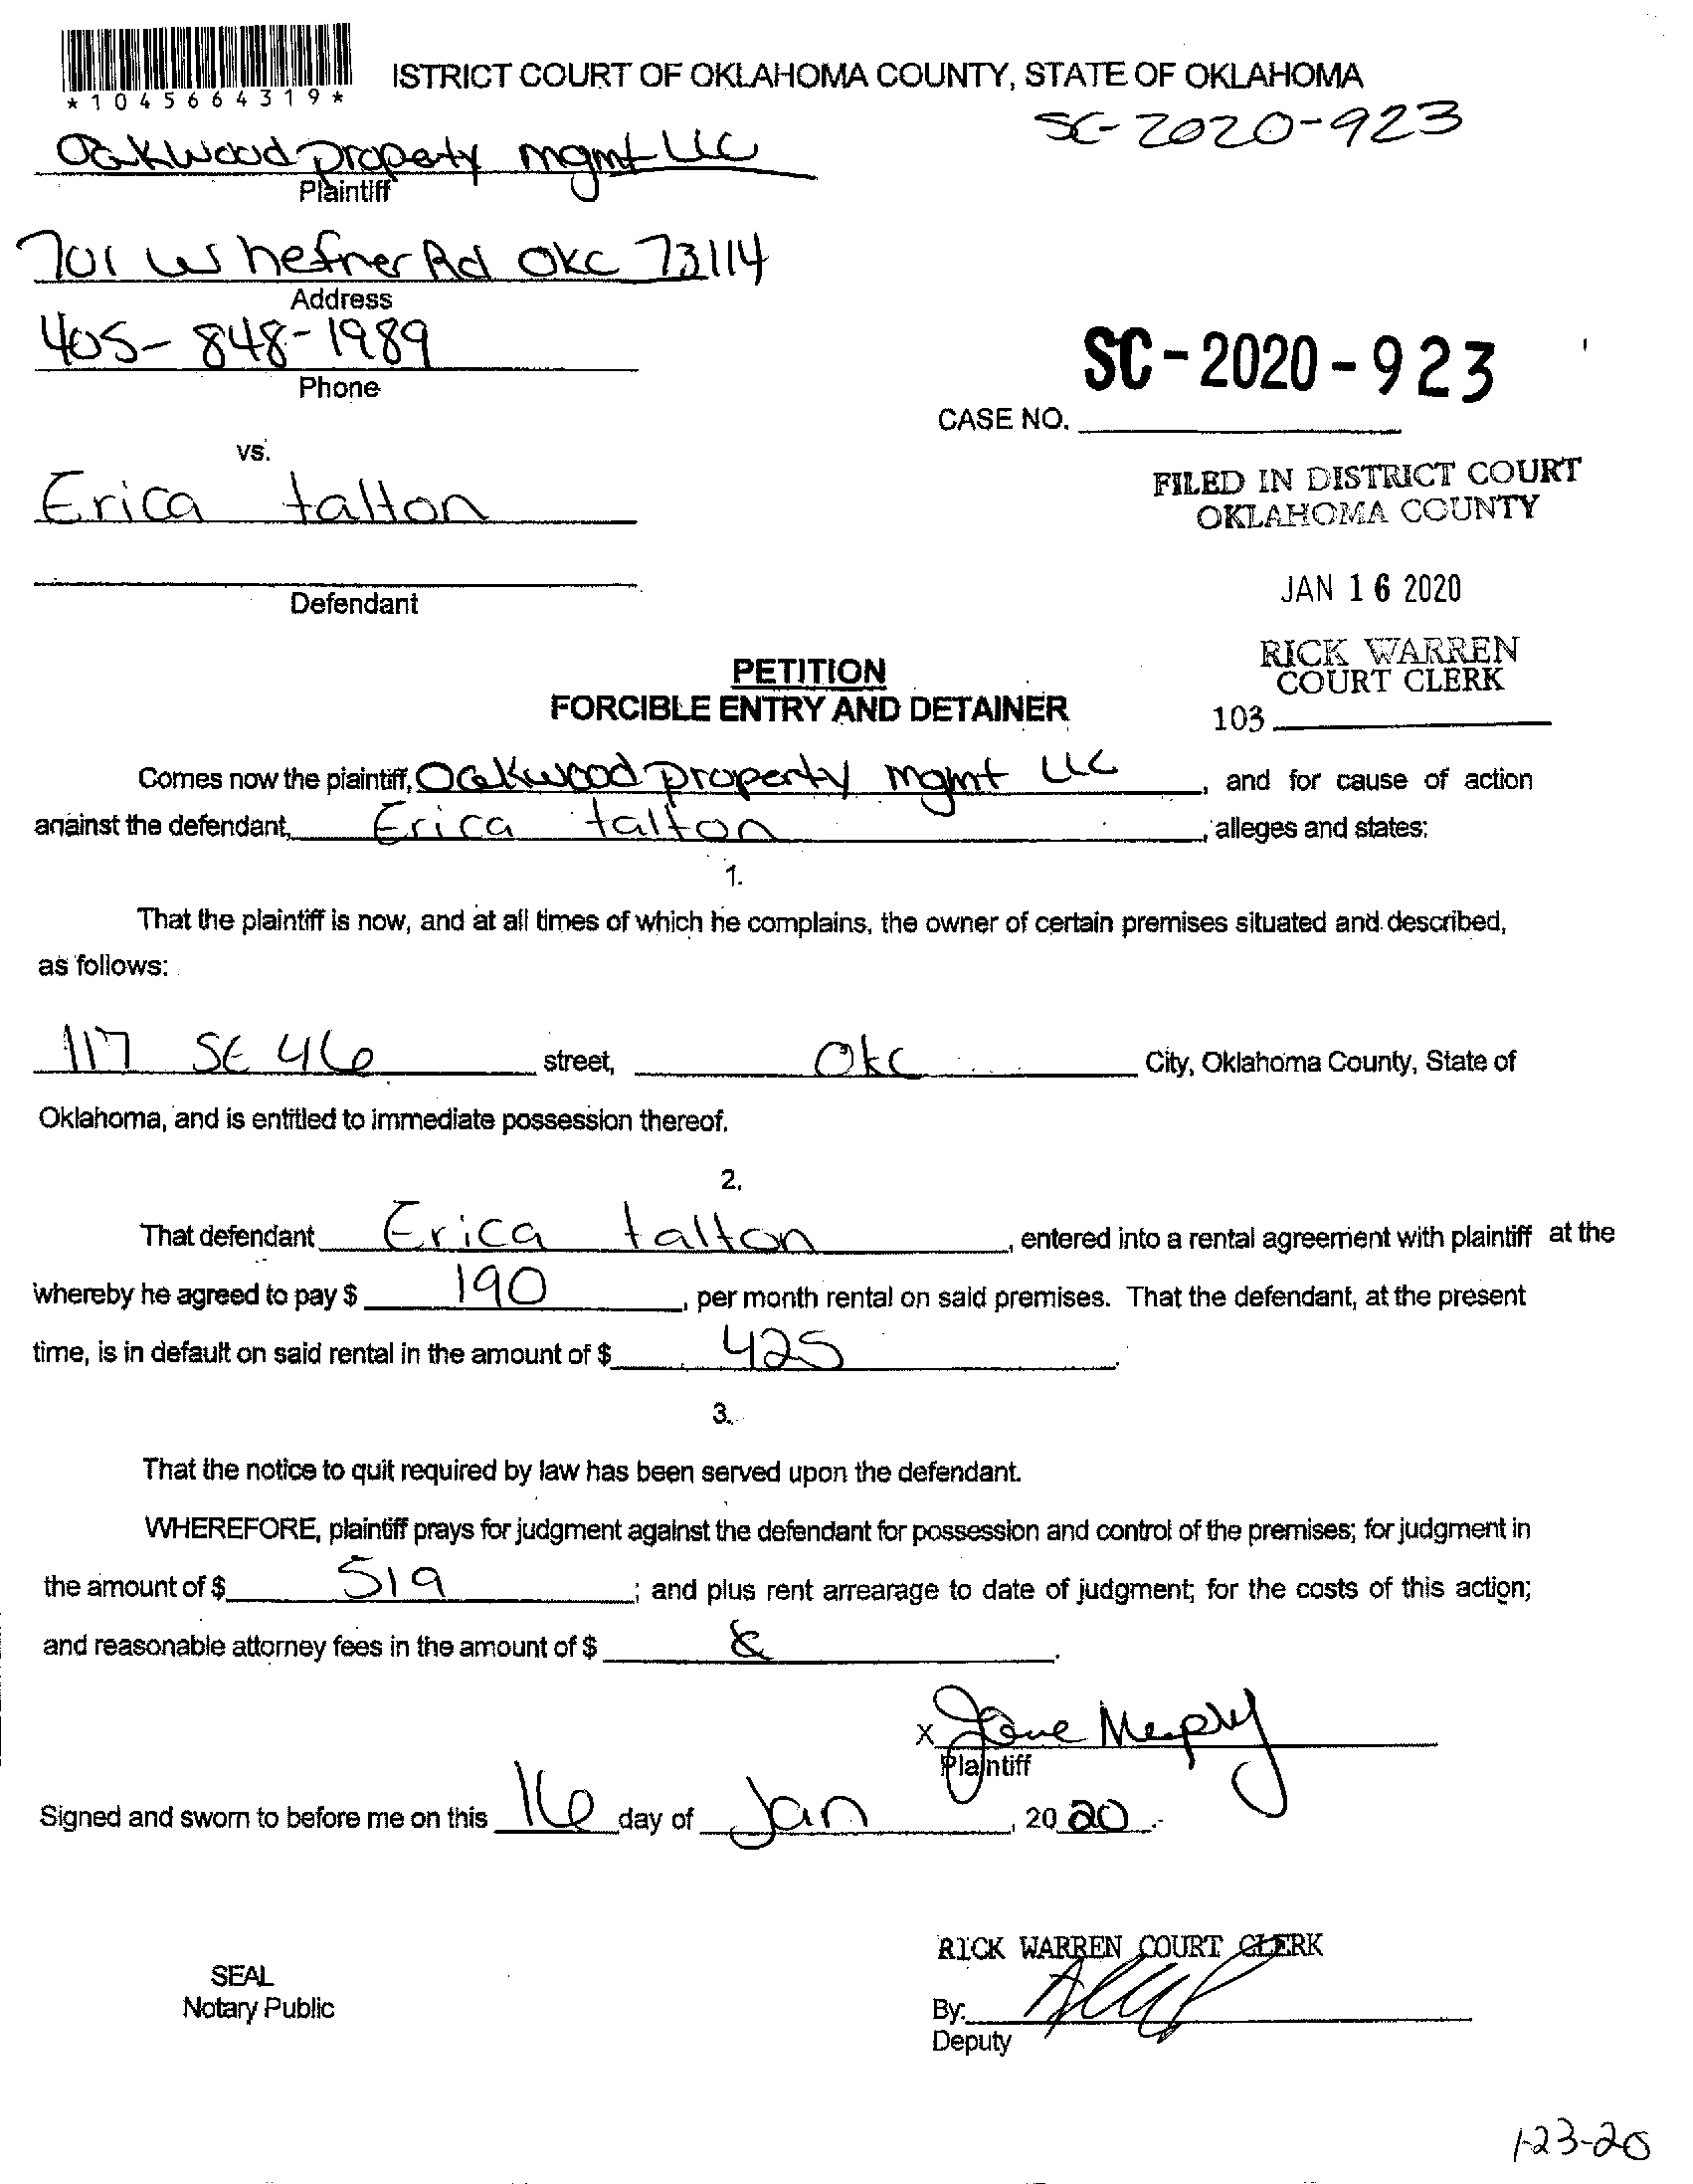 *1045664319*
ISTRICT COURT OF OKLAHOMA COUNTY, STATE OF OKLAHOMA
SC-2020-923
Oakwood property mgmt LLC
Plaintiff
701 W hefner Rd OKC 73114
Address
405-848-1989
Phone
SC-2020-923
CASE NO.
vs.
Erica talton
FILED IN DISTRICT COURT
OKLAHOMA COUNTY
Defendant
JAN 16 2020
RICK WARREN
COURT CLERK
103
PETITION
FORCIBLE ENTRY AND DETAINER
Comes now the plaintiff, Oakwood property mgmt LLC, and for cause of action
against the defendant, Erica talton, alleges and states:
1.
That the plaintiff is now, and at all times of which he complains, the owner of certain premises situated and described,
as follows:
117 SE 46 street, Okc City, Oklahoma County, State of
Oklahoma, and is entitled to immediate possession thereof.
2.
That defendant Erica talton, entered into a rental agreement with plaintiff at the
whereby he agreed to pay $ 190, per month rental on said premises. That the defendant, at the present
time, is in default on said rental in the amount of $ 425.
3.
That the notice to quit required by law has been served upon the defendant.
WHEREFORE, plaintiff prays for judgment against the defendant for possession and control of the premises; for judgment in
the amount of $ 519; and plus rent arrearage to date of judgment; for the costs of this action;
and reasonable attorney fees in the amount of $ &.
x
Plaintiff
Signed and sworn to before me on this 16 day of Jan, 2020.
RICK WARREN COURT CLERK
SEAL
Notary Public
By:
Deputy
1-23-20